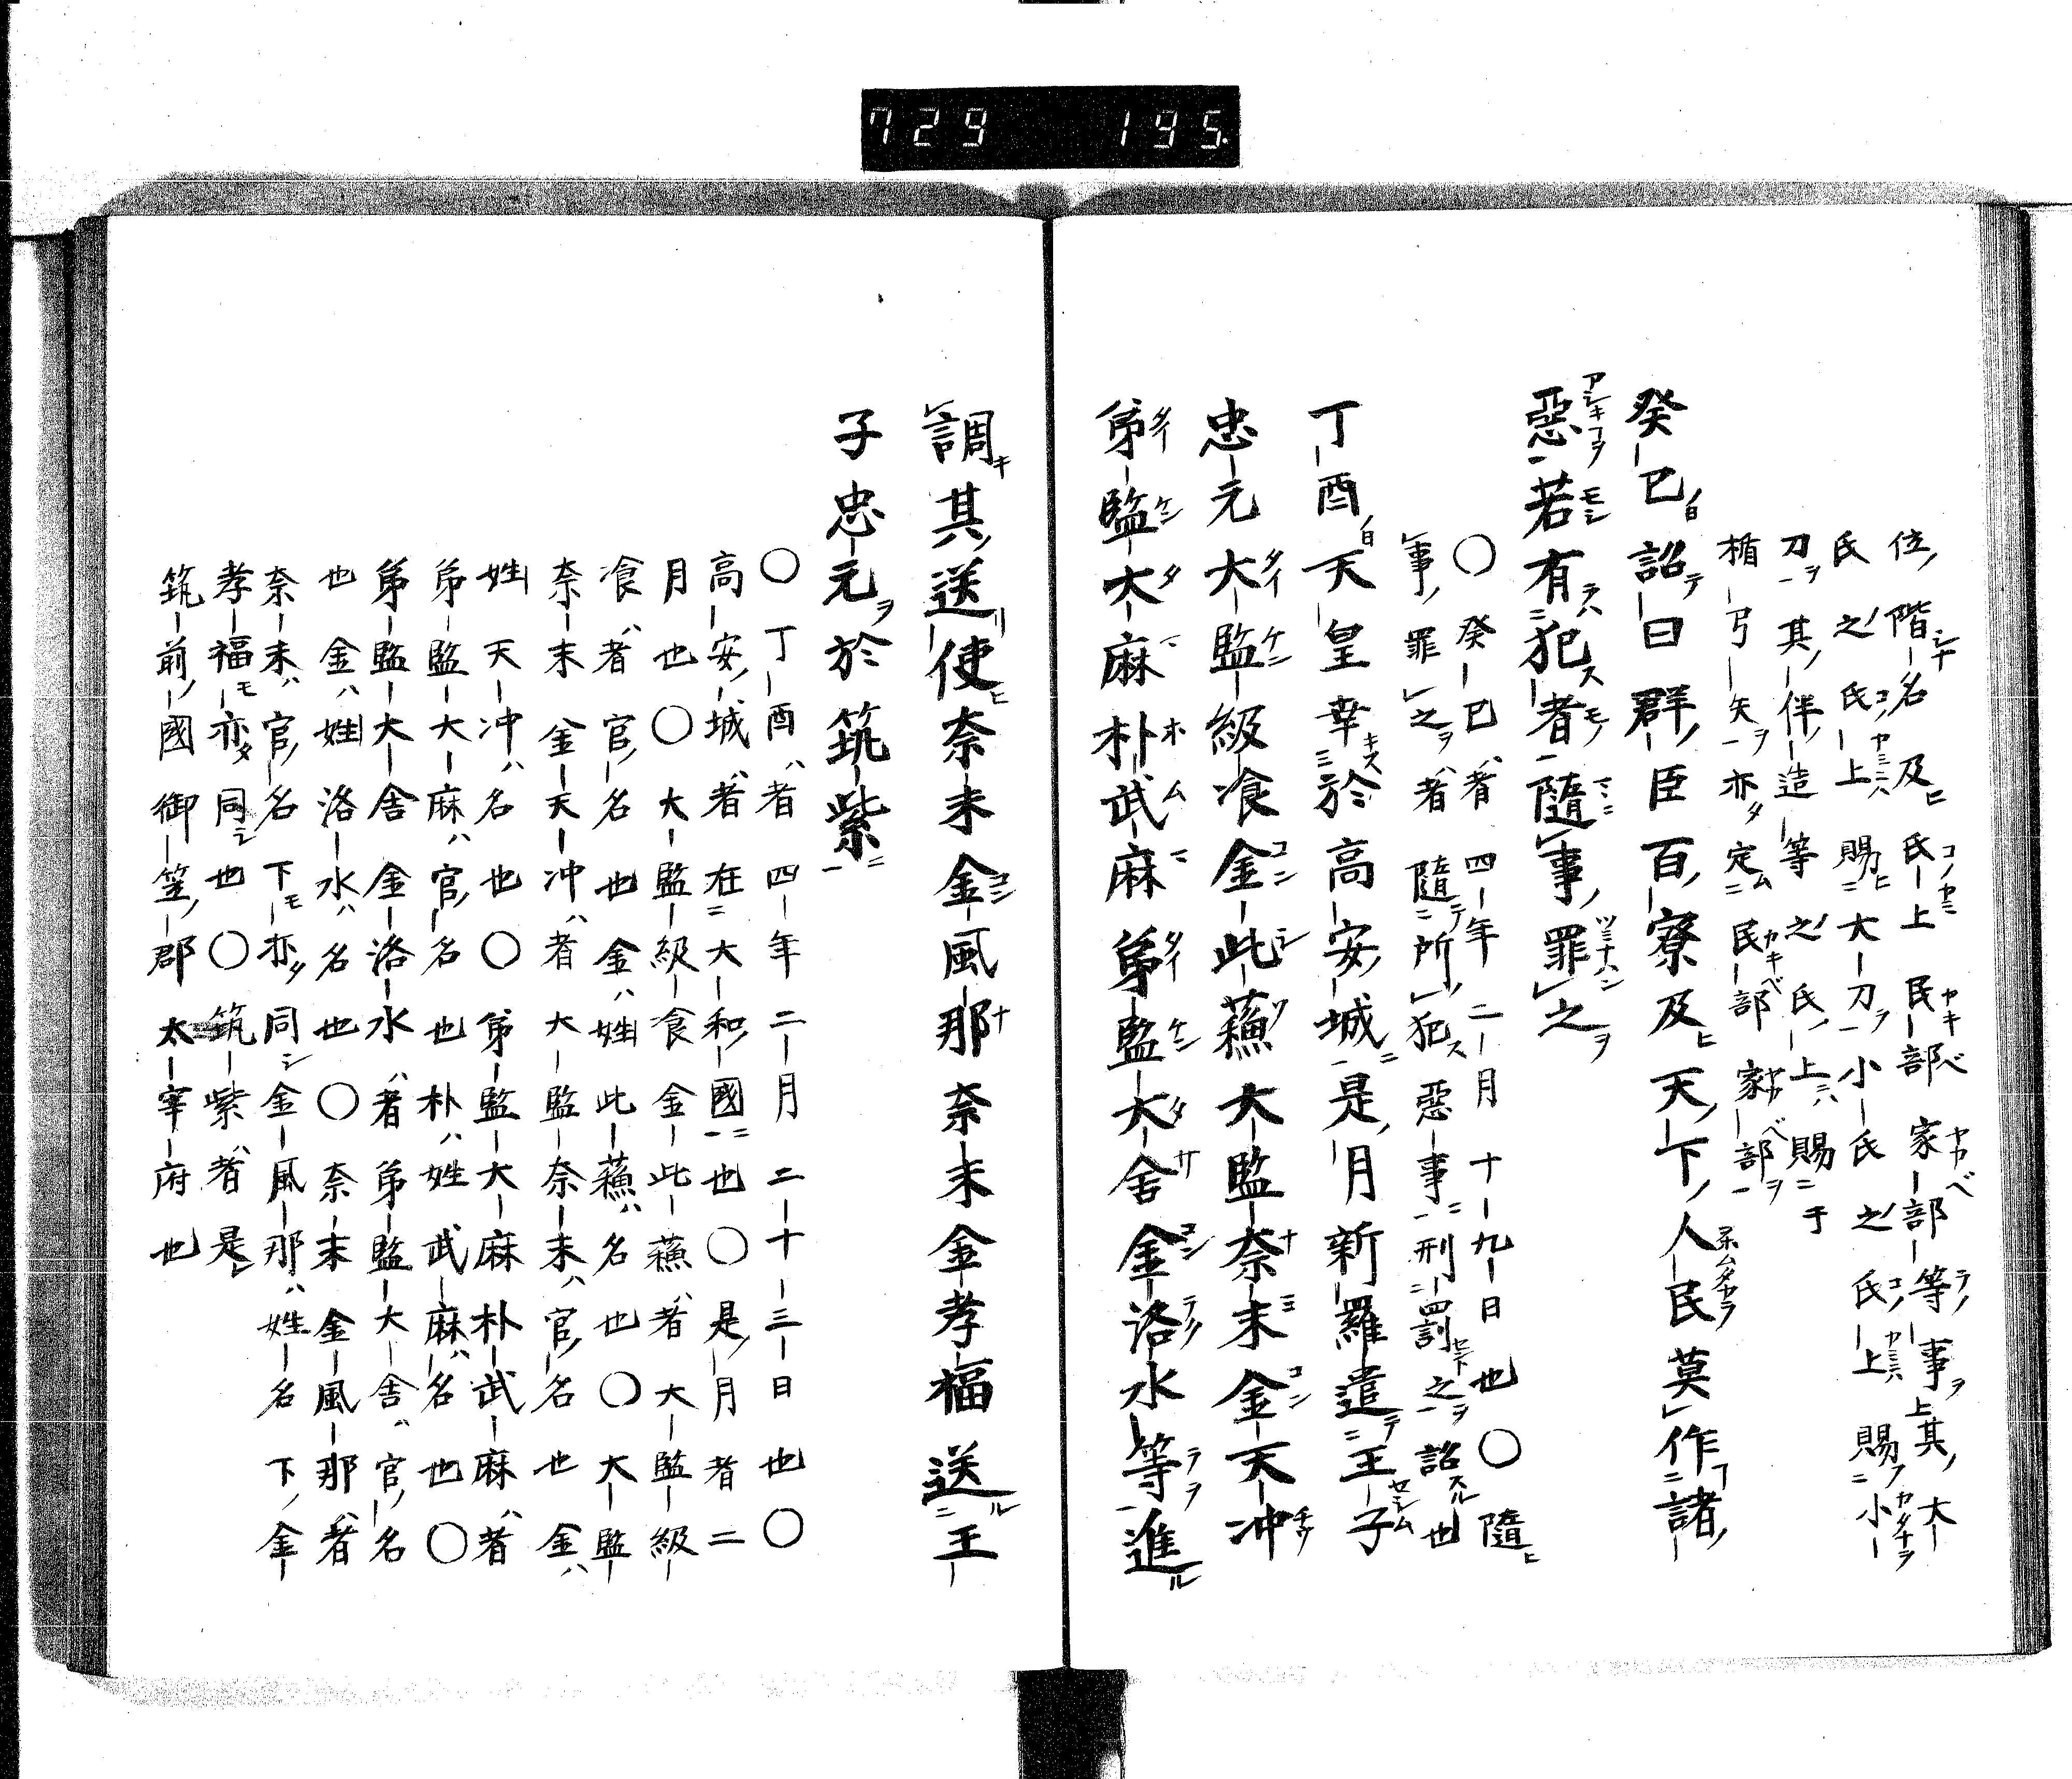 729 195
位階名及氏上民部家部等事其大
氏之氏上賜大刀小氏之氏上賜小
刀其伴造等之氏上賜于
楯弓矢亦定民部家部
癸巳詔曰群臣百寮及天下人民莫作諸
惡若有犯者隨事罪之
〇癸巳者四年二月十九日也〇隨
事罪之者隨所犯惡事刑罰之詔也
丁酉天皇幸於高安城是月新羅遣王子
忠元大監級飡金比蘓大監奈末金天冲
弟監大麻朴武麻弟監大舍金洛水等進
調其送使奈末金風那奈末金孝福送王
子忠元於筑紫
〇丁酉者四年二月二十三日也〇
高安城者在大和國也〇是月者二
月也〇大監級飡金比蘓者大監級
飡者官名也金姓比蘓名也〇大監
奈末金天冲者大監奈末官名也金
姓天冲名也〇弟監大麻朴武麻者
弟監大麻官名也朴姓武麻名也〇
弟監大舍金洛水者弟監大舍官名
也金姓洛水名也〇奈末金風那者
奈末官名下亦同金風那姓名下金
孝福亦同也〇筑紫者是
筑前國御笠郡太宰府也